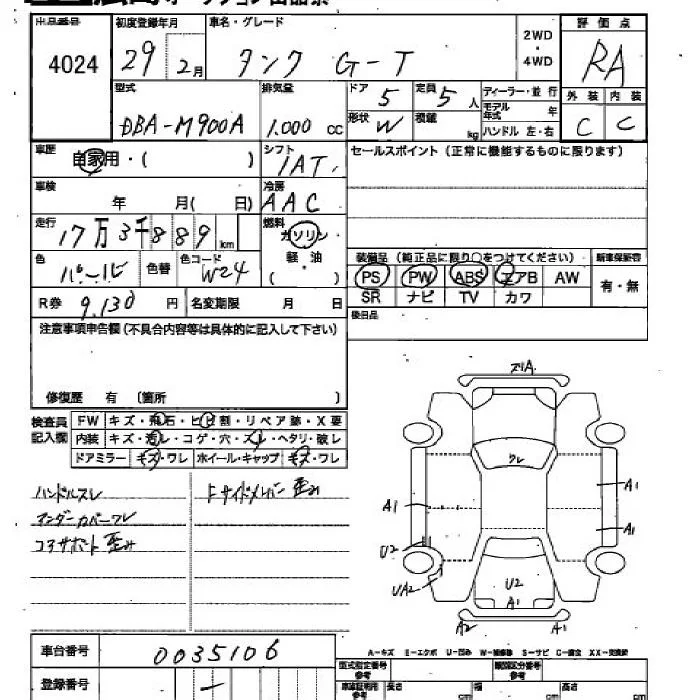 出品番号 初度登録年月 車名・グレード 2WD・4WD 評価点
4024 29年 2月 タンク G-T RA
型式 排気量 ドア 定員 ディーラー・並行 外装 内装
DBA-M900A 1.000cc 5 5人 モデル年式 年 C C
形状 W 積載 kg ハンドル 左・右
車歴 自家用・( ) シフト IAT セールスポイント(正常に機能するものに限ります)
車検 年 月( 日) 冷房 AAC
走行 17万3千889km 燃料 ガソリン・軽油 ( )
色 パール 色替 色コード W24
装備品(純正品に限り○をつけてください) 新車保証書
PS PW ABS エアB AW 有・無
SR ナビ TV カワ
R券 9.130円 名変期限 月 日
後日品
注意事項申告欄(不具合内容等は具体的に記入して下さい)
修復歴 有 〔箇所 〕
検査員記入欄 FW キズ・飛石・ヒビ割・リペア跡・X要
内装 キズ・汚レ・コゲ・穴・スレ・ヘタリ・破レ
ドアミラー キズ・ワレ ホイール・キャップ キズ・ワレ
ハンドルスレ Fサイドメンバー歪み
アンダーカバーワレ
コアサポート歪み
ズリA
クレ
A1 A1
A1
U2
UA2 U2
A1
A2 A1
A-キズ E-エクボ U-凹み W-補修跡 S-サビ C-腐食 XX-交換済
車台番号 0035106
型式指定番号 参考 類別区分番号 参考
登録番号 - 車庫証明用 参考 長さ cm 幅 cm 高さ cm